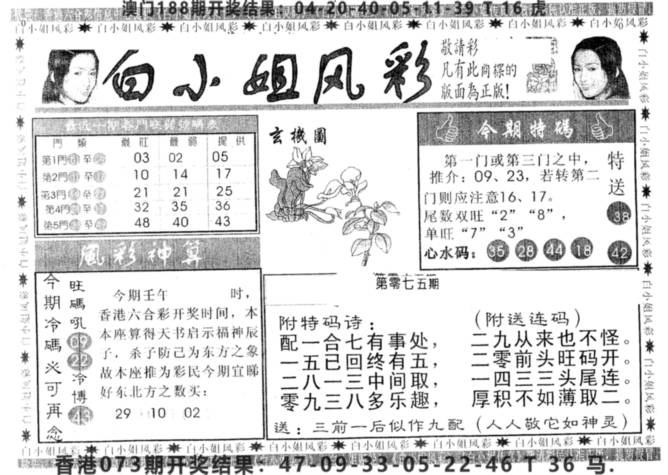 澳门188期开奖结果：04-20-40-05-11-39 T 16 虎
白小姐风彩
敬請彩
凡有此商標的
版面為正版！
門 類 最旺 最弱 提供
第1門 至 03 02 05
第2門 至 10 14 17
第3門 至 21 21 25
第4門 至 32 35 36
第5門 至 48 40 43
玄機圖
今期特碼
第一门或第三门之中，
推介：09、23，若转第二
门则应注意16、17。
尾数双旺“2”“8”，
单旺“7”“3”
心水码：35 28 44 18 42
特送
38
風彩神算
今期冷碼必可再念
旺碼吼
09
22
冷博
43
今期壬午 时，
香港六合彩开奖时间，本
本座算得天书启示福神辰
子，杀子防己为东方之象
故本座推为彩民今期宜睇
好东北方之数买：
29 10 02
第零七五期
附特码诗：
配一合七有事处，
一五已回终有五，
二八一三中间取，
零九三八多乐趣，
（附送连码）
二九从来也不怪。
二零前头旺码开。
一四三三头尾连。
厚积不如薄取二。
送：三前一后似作九配（人人敬它如神灵）
香港073期开奖结果：47-09-33-05-22-46 T 36 马.